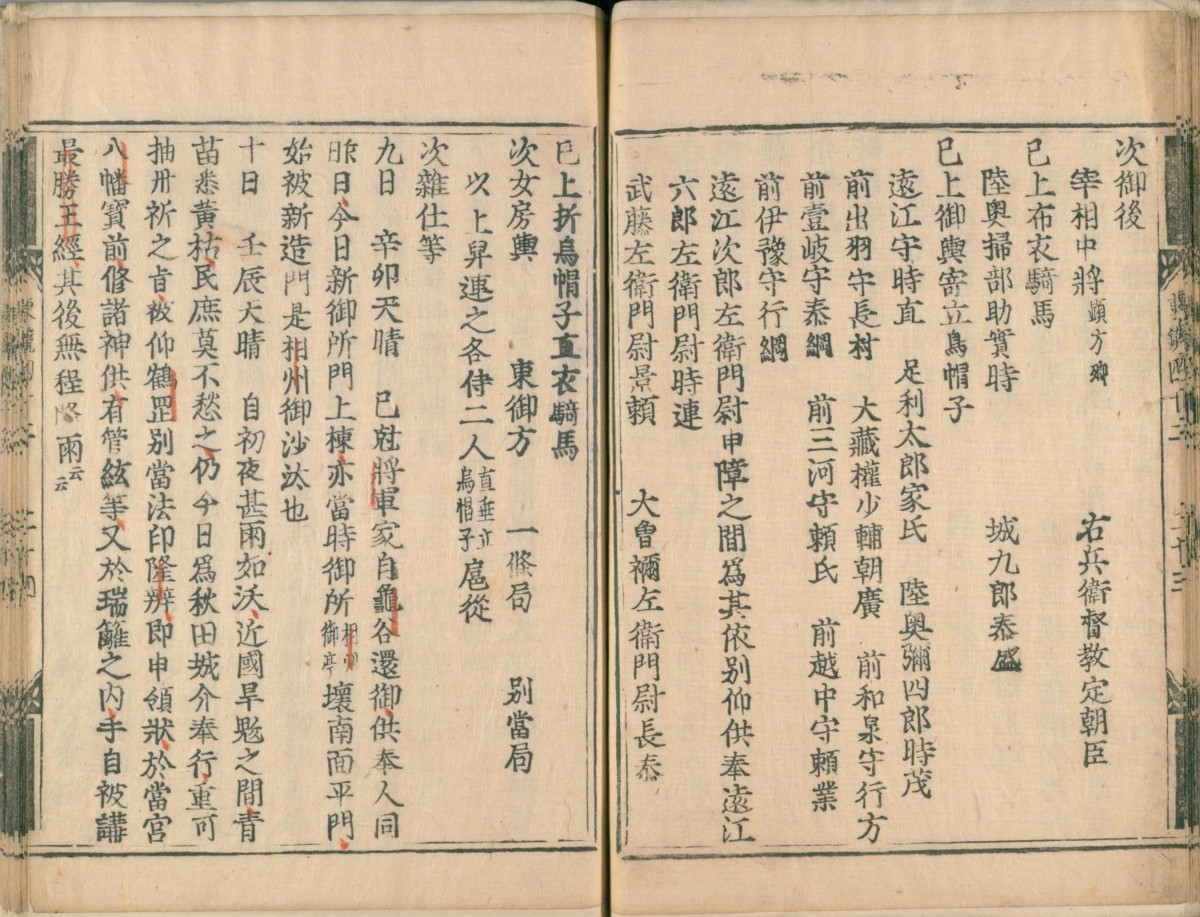 次御後
宰相中將顕方卿　右兵衛督教定朝臣
已上布衣騎馬
陸奥掃部助實時　城九郎泰盛
已上御輿寄立烏帽子
遠江守時直　足利太郎家氏　陸奥弥四郎時茂
前出羽守長村　大藏權少輔朝廣　前和泉守行方
前壹岐守泰綱　前三河守頼氏　前越中守頼業
前伊豫守行綱
遠江次郎左衛門尉申障之間爲其依別仰供奉遠江
六郎左衛門尉時連
武藤左衛門尉景頼　大曽祢左衛門尉長泰
已上折烏帽子直衣騎馬
次女房輿　東御方　一條局　別當局
以上舁連之各侍二人直垂立烏帽子扈從
次雜仕等
九日　辛卯天晴　已尅將軍家自龜谷還御供奉人同
昨日今日新御所門上棟亦當時御所相州御亭壞南面平門
始被新造門是相州御沙汰也
十日　壬辰天晴　自初夜甚雨如沃近國旱魃之間青
苗悉黄枯民庶莫不愁之仍今日爲秋田城介奉行重可
抽丹祈之旨被仰鶴罡別當法印隆辨即申領狀於當宮
八幡寳前修諸神供有管絃等又於瑞籬之内手自被講
最勝王經其後無程降雨云云